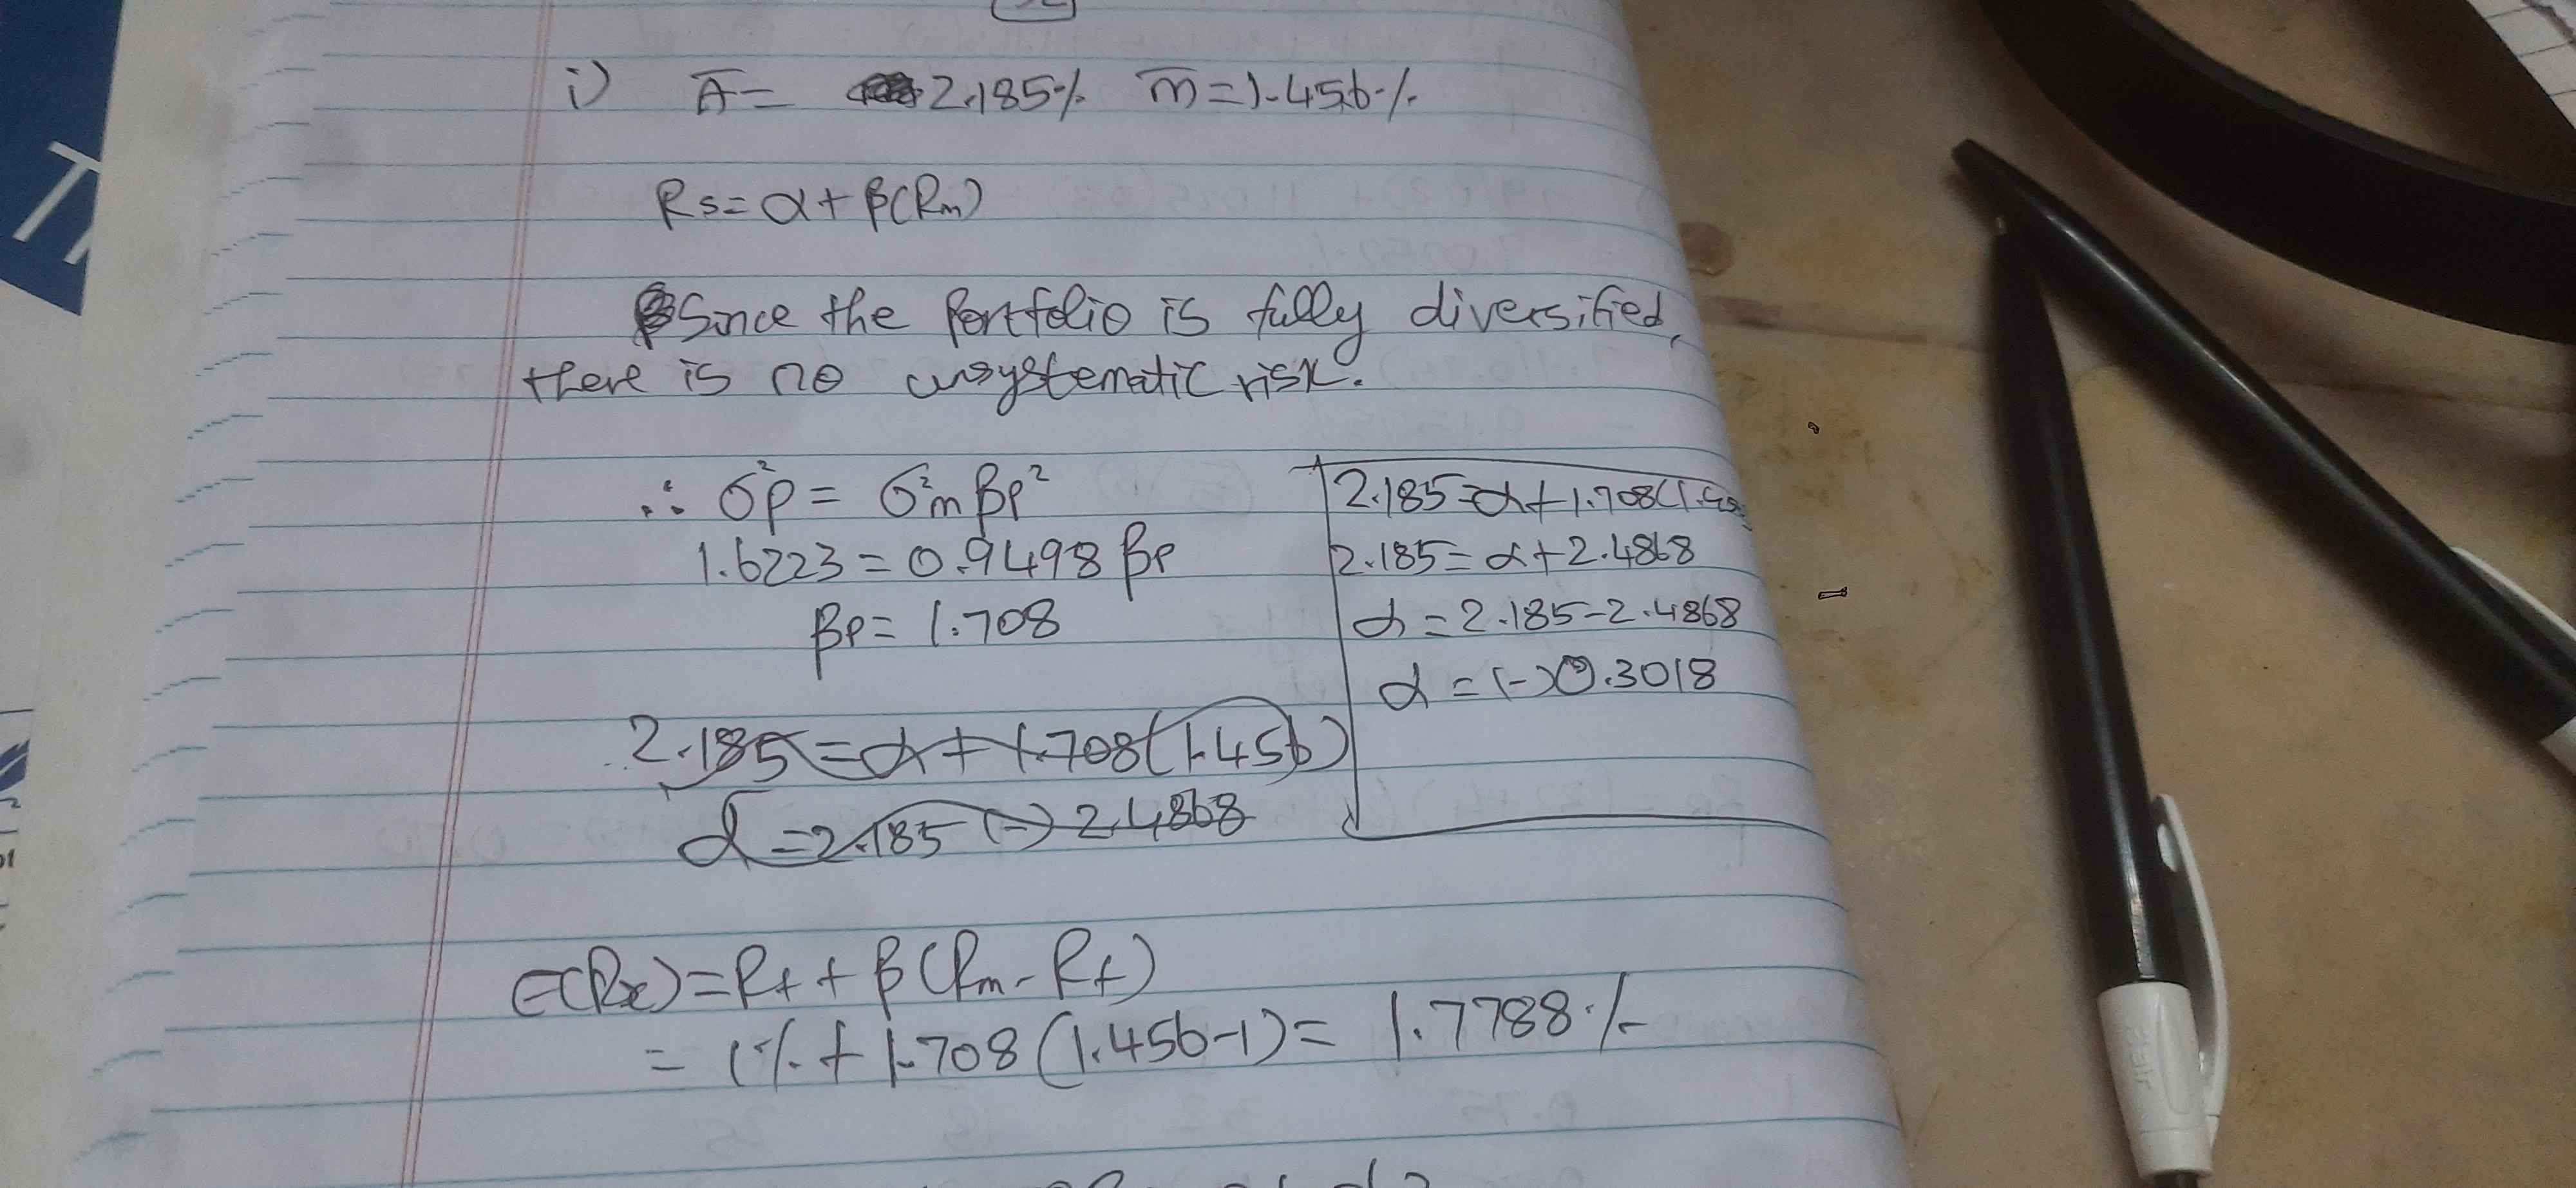 i) A̅ = 2.185% m̅ = 1.456%
Rs = α + β(Rm)
Since the Portfolio is fully diversified,
there is no unsystematic risk.
∴ σ²p = σ²m βp²
1.6223 = 0.9498 βp
βp = 1.708
2.185 = α + 1.708(1.456)
α = 2.185 (-) 2.4868
2.185 = α + 1.708(1.45
2.185 = α + 2.4868
α = 2.185 - 2.4868
α = (-) 0.3018
E(Rx) = Rf + β(Rm - Rf)
= 1% + 1.708 (1.456-1) = 1.7788%